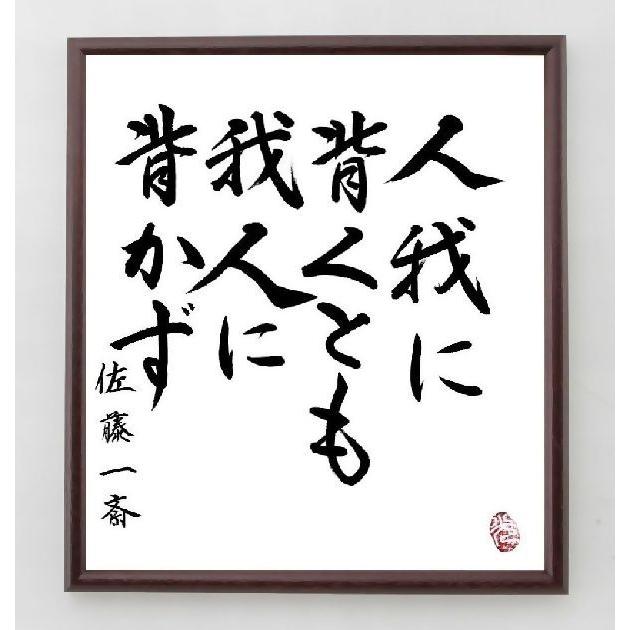 人我に
背くとも
我人に
背かず
佐藤一斎